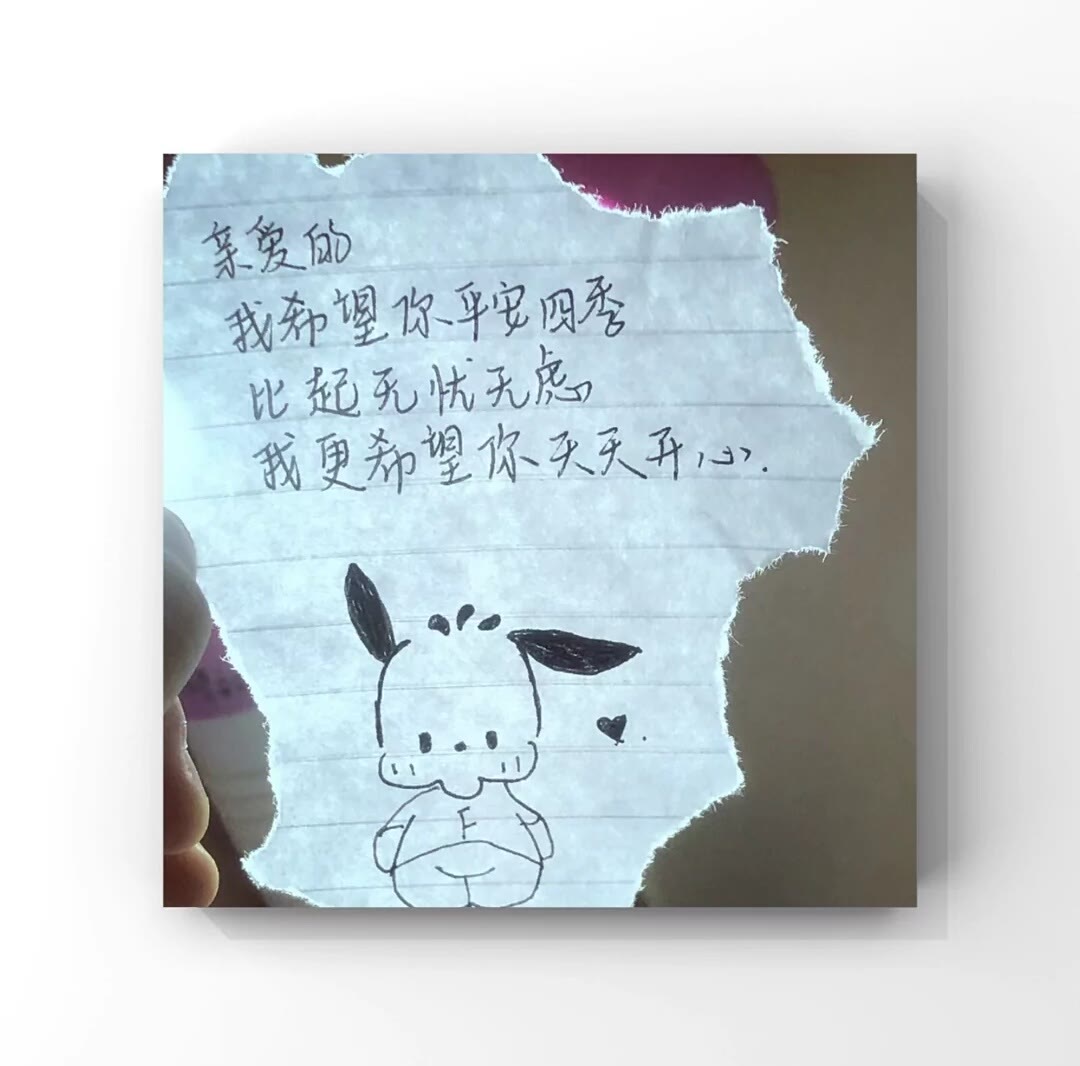 亲爱的
我希望你平安四季
比起无忧无虑
我更希望你天天开心.
F